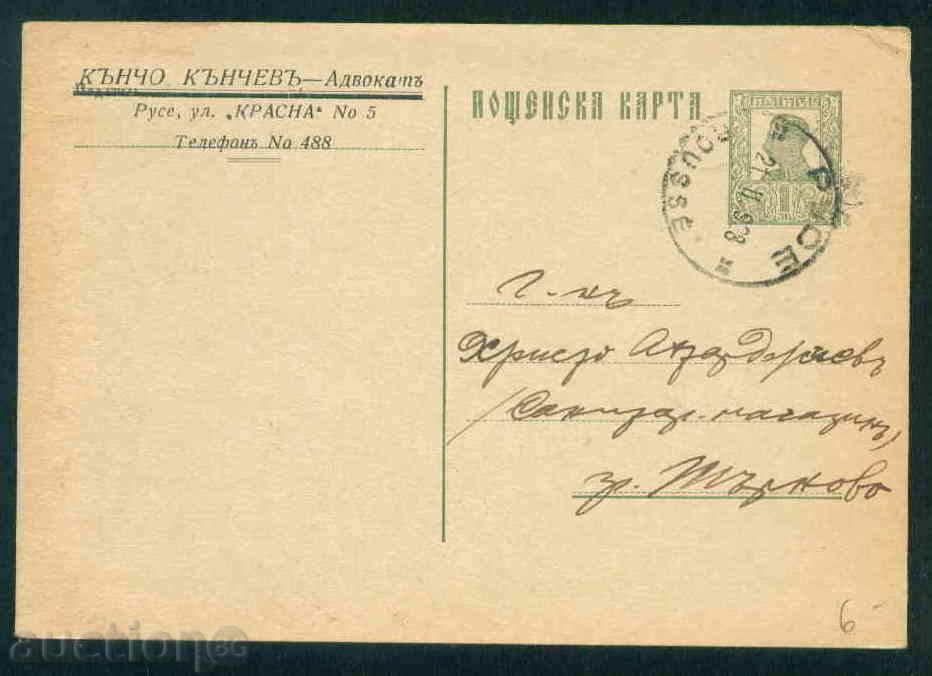 КЪНЧО КЪНЧЕВЪ—Адвокатъ
Русе, ул. „КРАСНА“ No 5
Телефонъ No 488
ПОЩЕНСКА КАРТА
РУСЕ
ROUSSE
1
Г-нъ
Христо
магазинъ)
гр. Търново
6
auction.bg